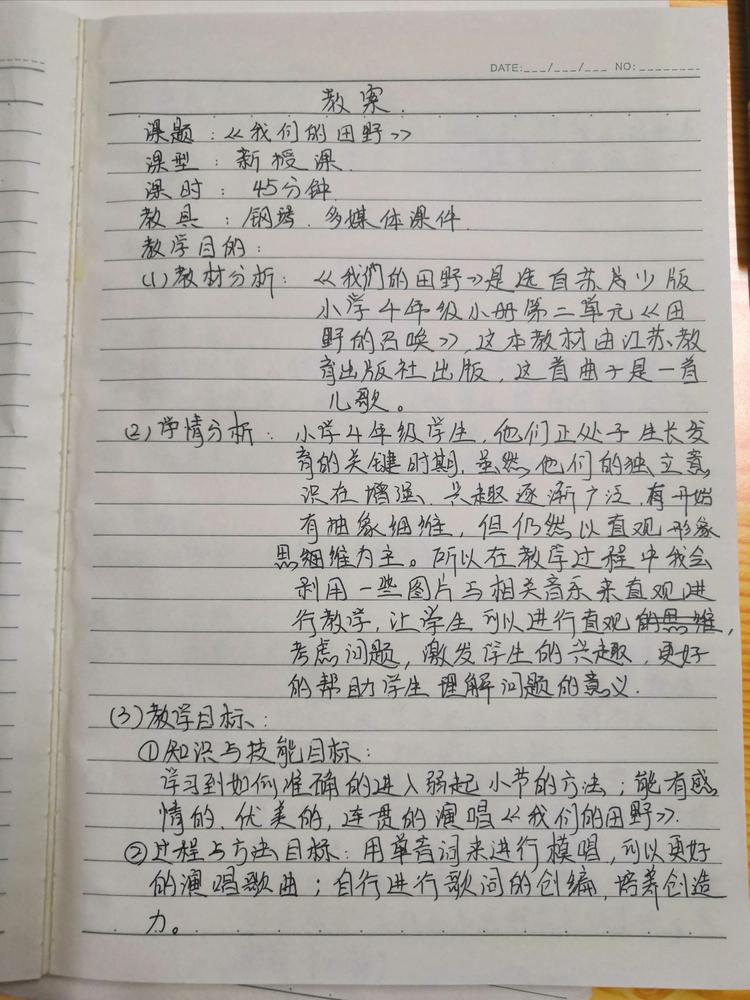 DATE:___/___/___ NO:________
教案.
课题：《我们的田野》
课型：新授课.
课时：45分钟.
教具：钢琴.多媒体课件.
教学目的：
(1)教材分析：《我們的田野》是选自苏少版
小学4年级小册第二单元《田
野的召唤》,这本教材由江苏教
育出版社出版,这首曲子是一首
儿歌。
(2)学情分析：小学4年级学生,他们正处于生长发
育的关键时期,虽然他们的独立意
识在增强、兴趣逐渐广泛,有开始
有抽象细维,但仍然以直观形象
思细维为主。所以在教学过程中我会
利用一些图片与相关音乐来直观进
行教学,让学生可以进行直观的思维,
考虑问题,激发学生的兴趣,更好
的帮助学生理解问题的意义.
(3)教学目标：
①知识与技能目标：
学习到如何准确的进入弱起小节的方法；能有感
情的、优美的,连贯的演唱《我们的田野》.
②过程与方法目标：用单音词来进行模唱,可以更好
的演唱歌曲；自行进行歌词的创编,培养创造
力。